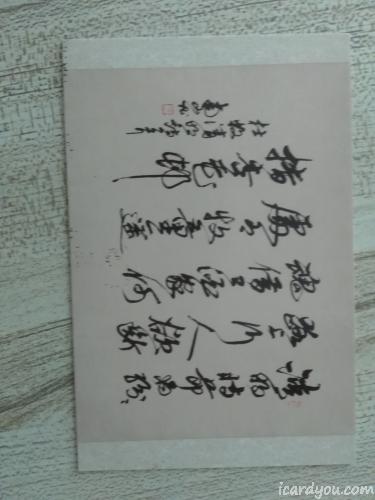 清明時節雨紛〻
路上行人欲斷
魂借問酒家何
處有牧童遥
指杏花村
杜牧清明詩
icardyou.com